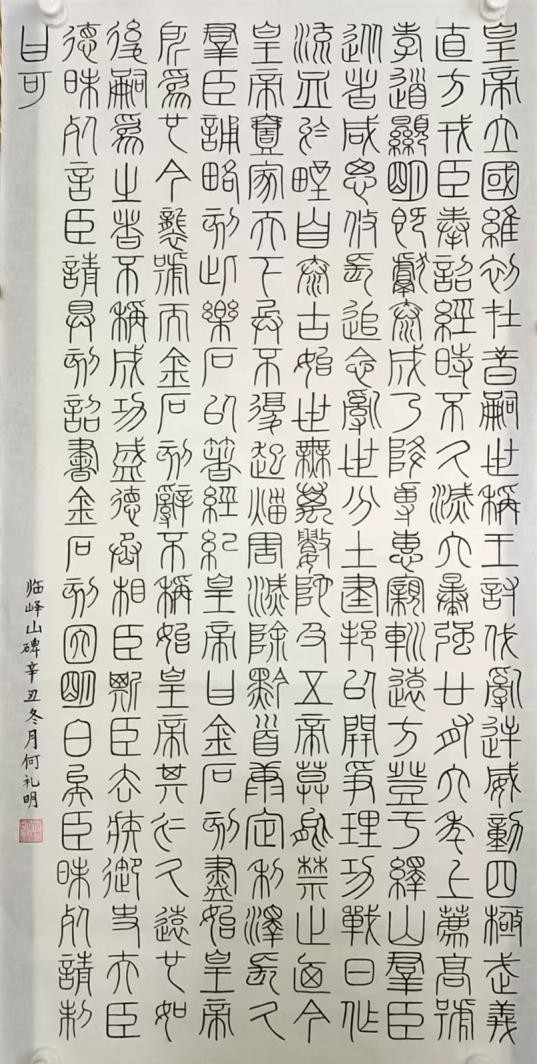 皇帝立國維初在昔嗣世稱王討伐亂逆威動四極武義
直方戎臣奉詔經時不久滅六暴強廿有六年上薦高號
孝道顯明既獻泰成乃降專惠親巡遠方登于繹山羣臣
從者咸思攸長追念亂世分土建邦以開爭理功戰日作
流血於野自泰古始世無萬數陀及五帝莫能禁止迺今
皇帝壹家天下兵不復起災害滅除黔首康定利澤長久
羣臣誦略刻此樂石以著經紀皇帝曰金石刻盡始皇帝
所為也今襲號而金石刻辭不稱始皇帝其於久遠也如
後嗣為之者不稱成功盛德丞相臣斯臣去疾御史夫臣
德昧死言臣請具刻詔書金石刻因明白矣臣昧死請制
曰可
临峄山碑辛丑冬月何礼明